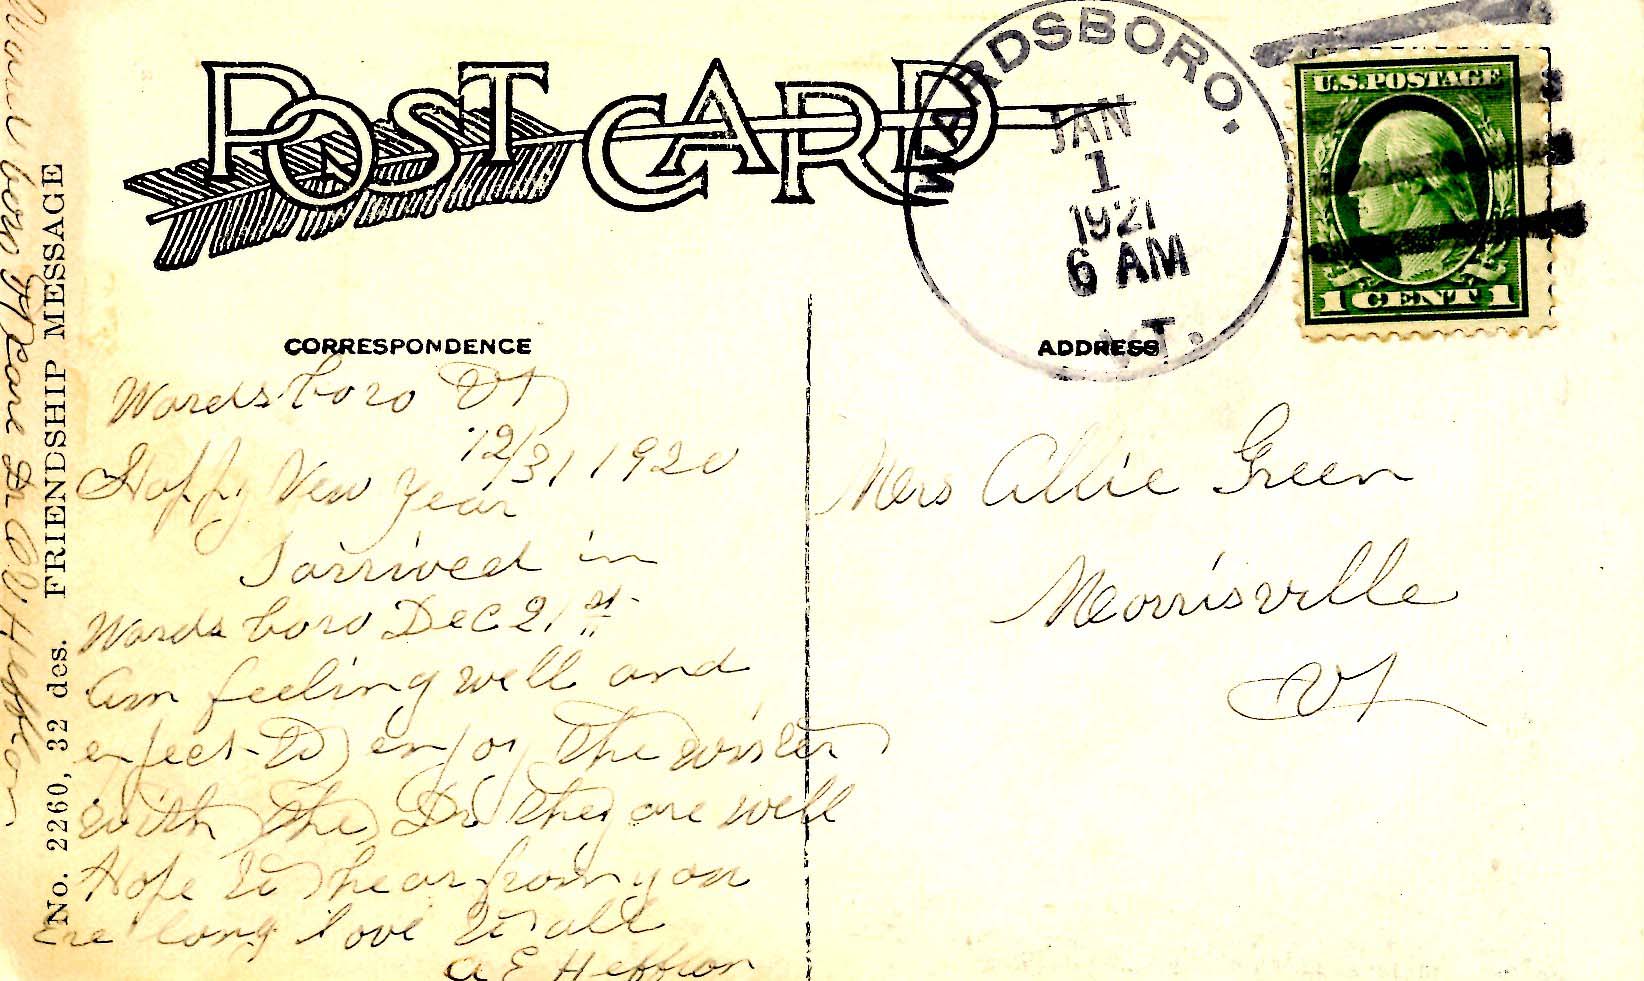 POST CARD
WARDSBORO,
JAN
1
1921
6 AM
VT.
U.S. POSTAGE
1 CENT 1
CORRESPONDENCE
ADDRESS
Wardsboro Vt
12/31 1920
Happy New Year
I arrived in
Wardsboro Dec 21st
am feeling well and
expect to enjoy the winter
with the Dr they are well
Hope to hear from you
Ere long love to all
A E Heffron
Mrs Allie Green
Morrisville
Vt
No. 2260, 32 des. FRIENDSHIP MESSAGE
Wardsboro Vt Care Dr Heffron